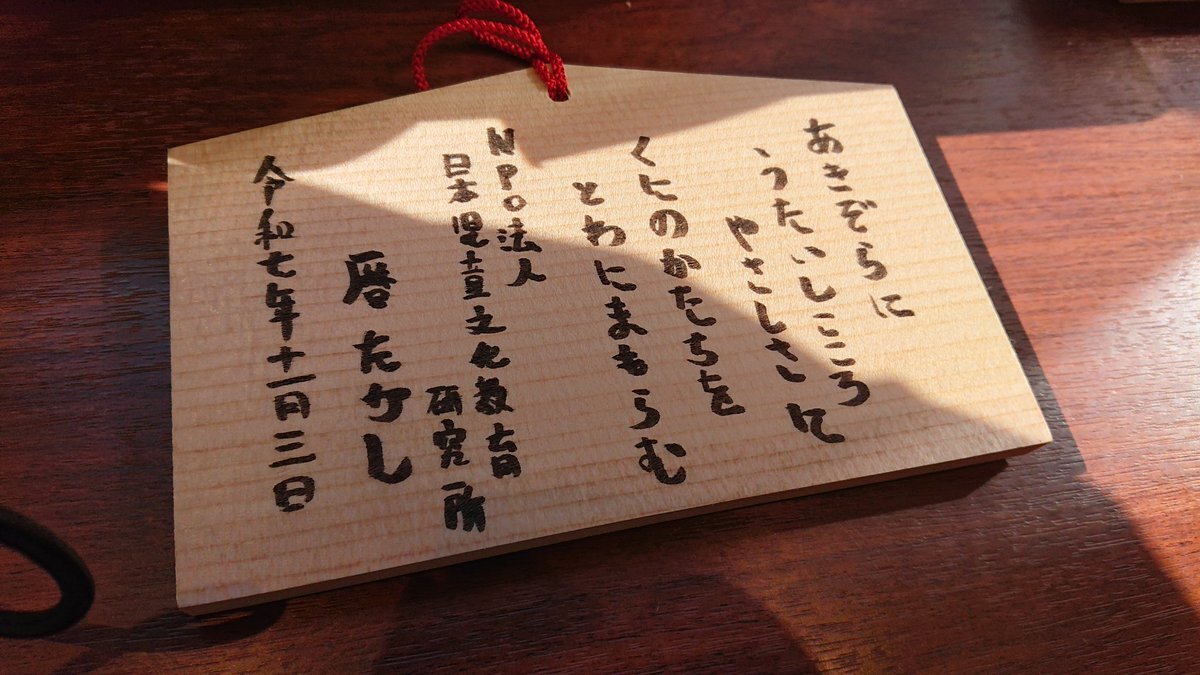 あきぞらに
うたいしこころ
やさしさに
くにのかたちを
とわにまもらむ
NPO法人
日本児童文化教育
研究所
暦たケし
令和七年十一月三日